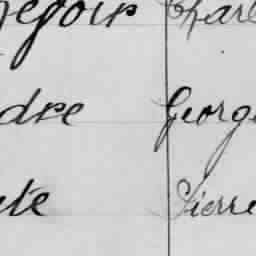 egoir Charl
dre Georg
ute Pierre